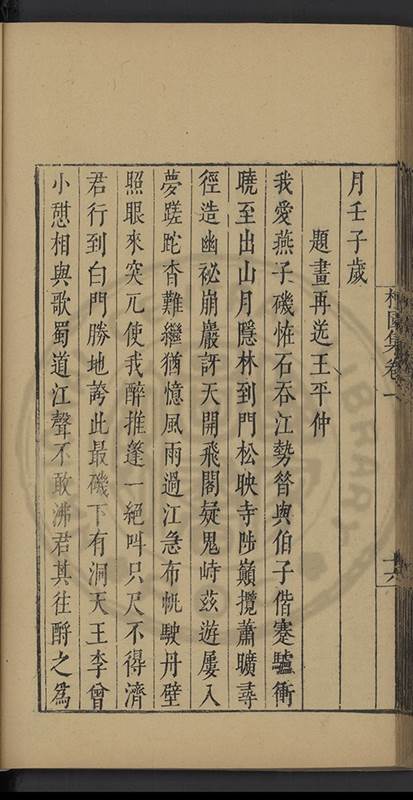 月壬子歲
題畫再送王平仲
我愛燕子磯恠石吞江勢昝與伯子偕蹇驢衝
曉至出山月隱林到門松映寺陟巔攬蕭曠尋
徑造幽祕崩巖訝天開飛閣疑鬼峙茲遊屢入
夢蹉跎香難繼猶憶風雨過江急布帆駛丹壁
照眼來突兀使我醉推篷一絕叫只尺不得濟
君行到白門勝地誇此最磯下有洞天王李曾
小憇相與歌蜀道江聲不敢沸君其往酹之爲
園集卷一
十六